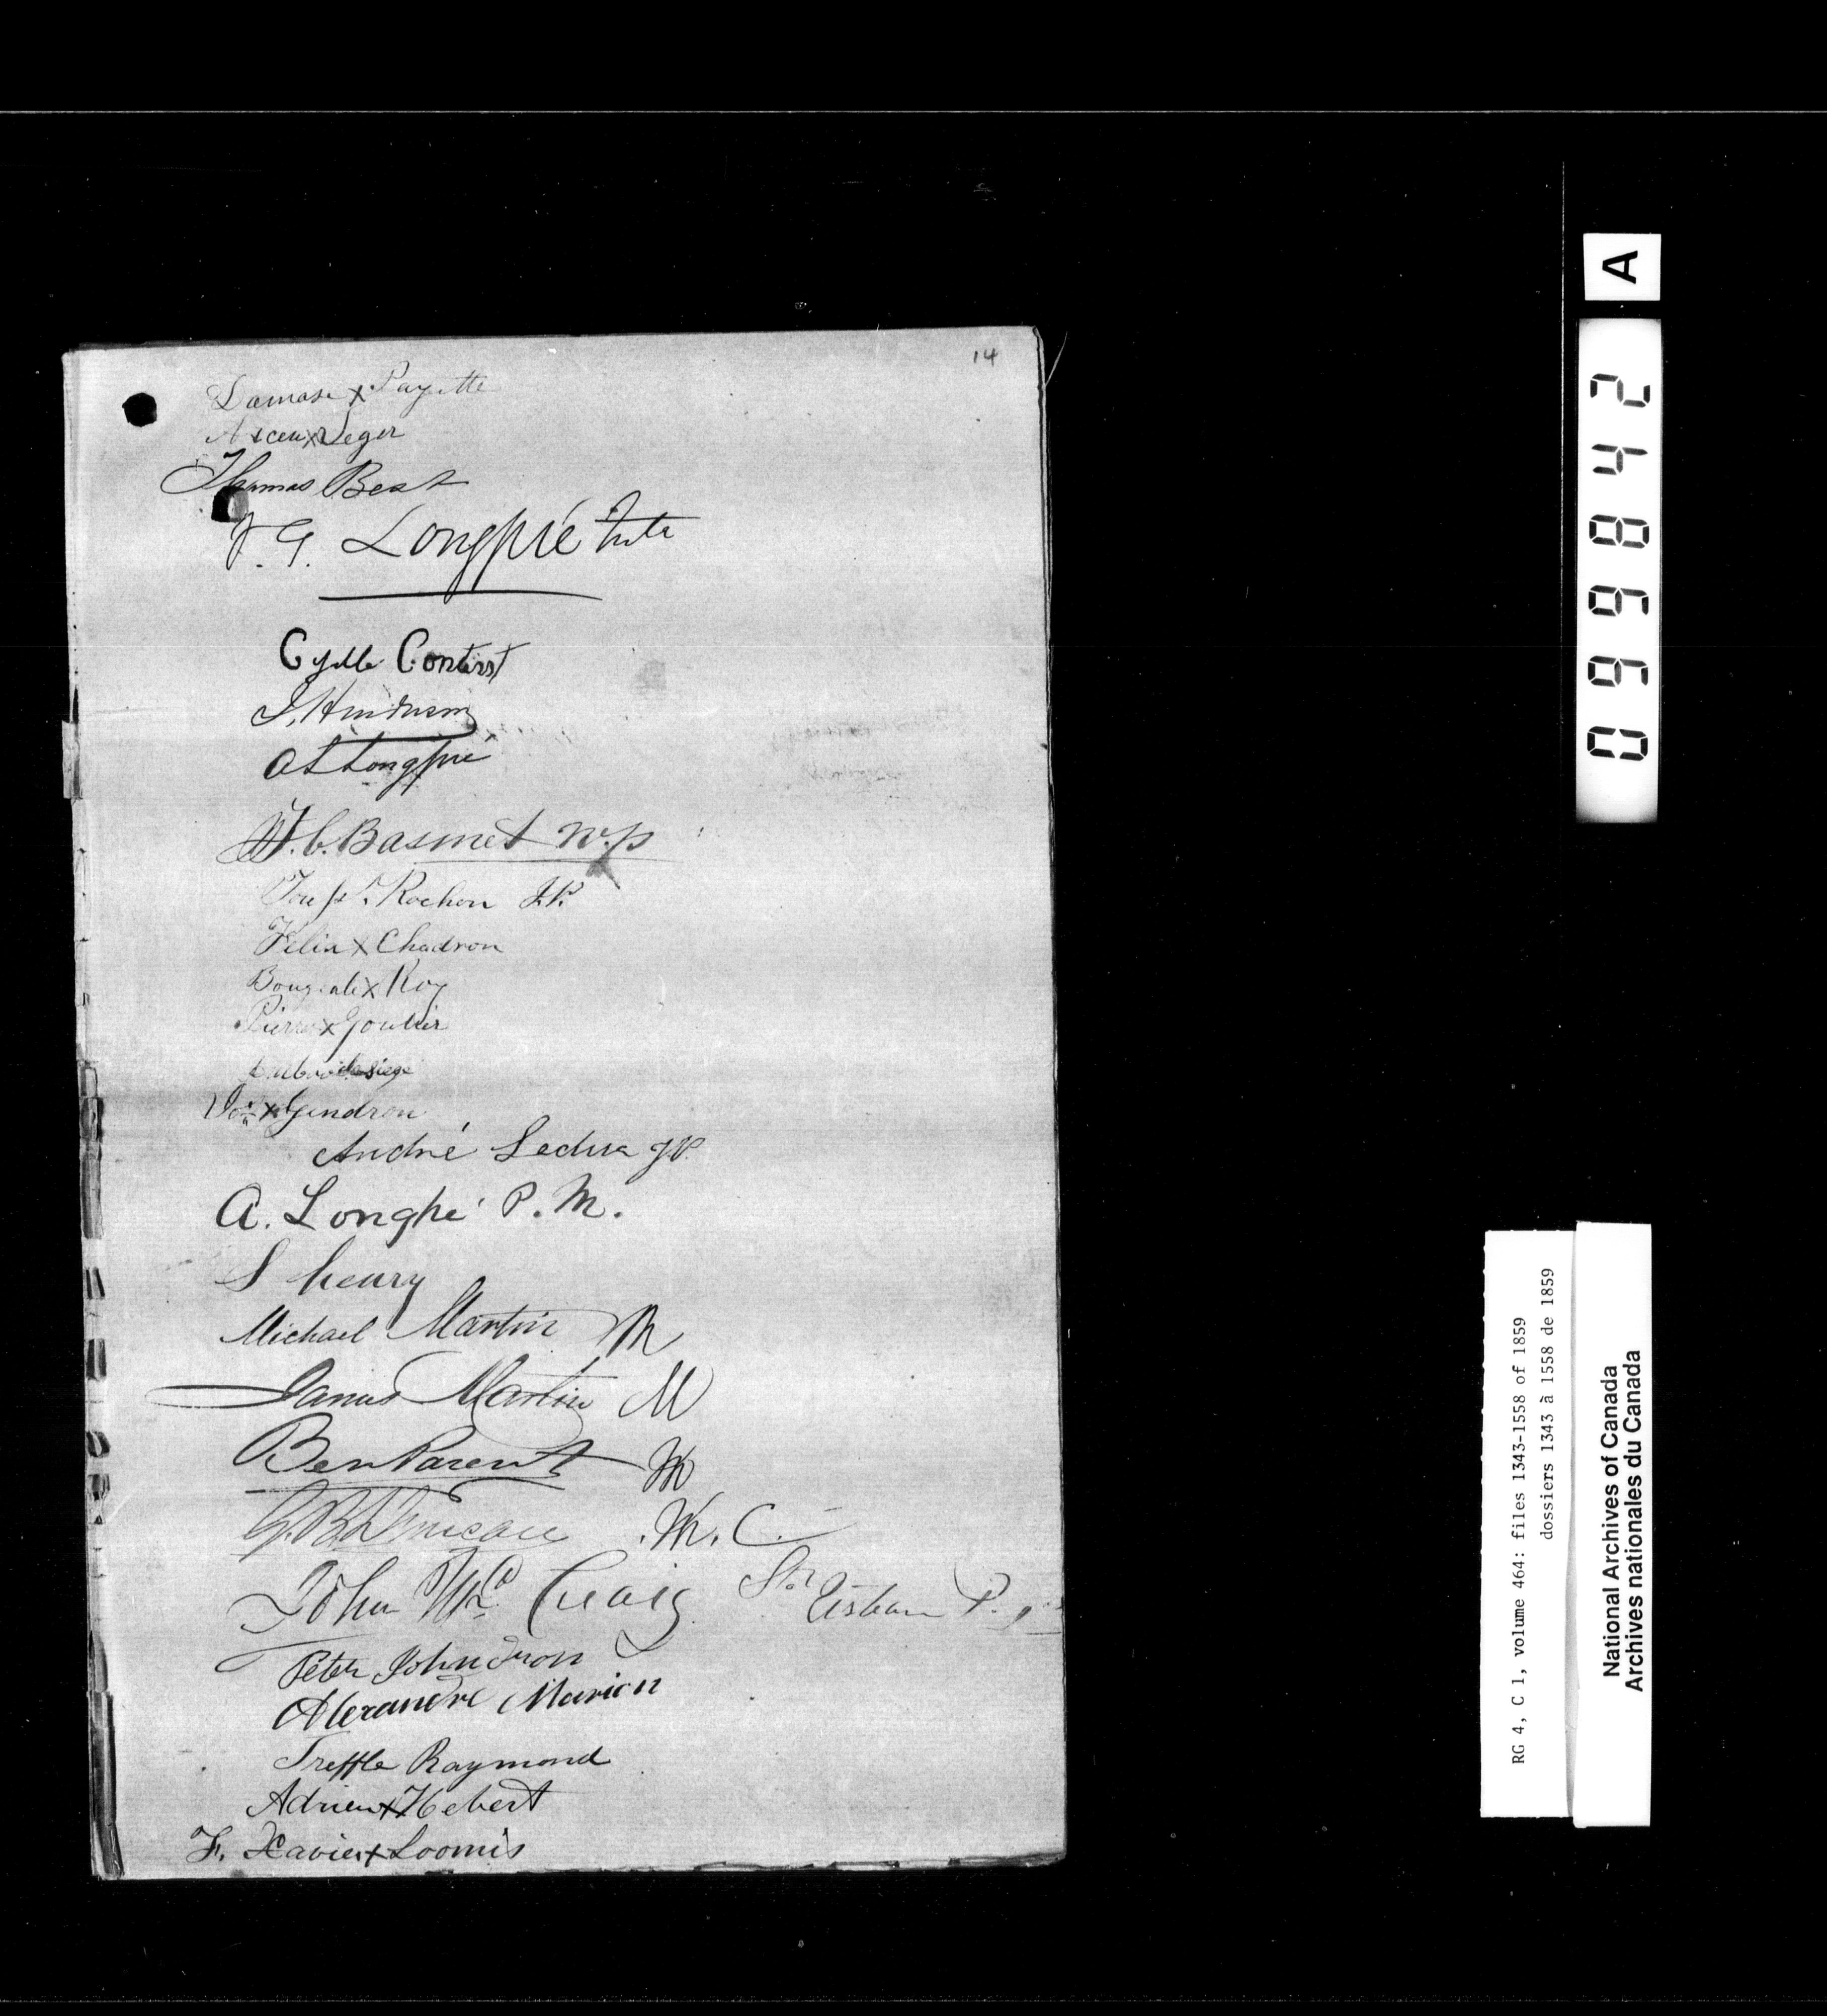 14
Damase x Payette
x Leger
Thomas Best
J. G. Longpré
Cyrille Contant
J. Henderson
A L Longpré
W. C. Basinet N. P
Rochon J. P.
Felix x Chadron
x Roy
Pierre x Goulier
Jos x Gendron
André Leduc J P.
A. Longpré P. M.
S henry
Michael Martin M
James Martin M
Ben Parent M
M. C.
John Mc Craig Sr
P.
Peter Johndron
Alexandre Marion
Treffle Raymond
Adrien x Hebert
F. Xavier x Loomis
A
099842
RG 4, C 1, volume 464: files 1343-1558 of 1859
dossiers 1343 à 1558 de 1859
National Archives of Canada
Archives nationales du Canada